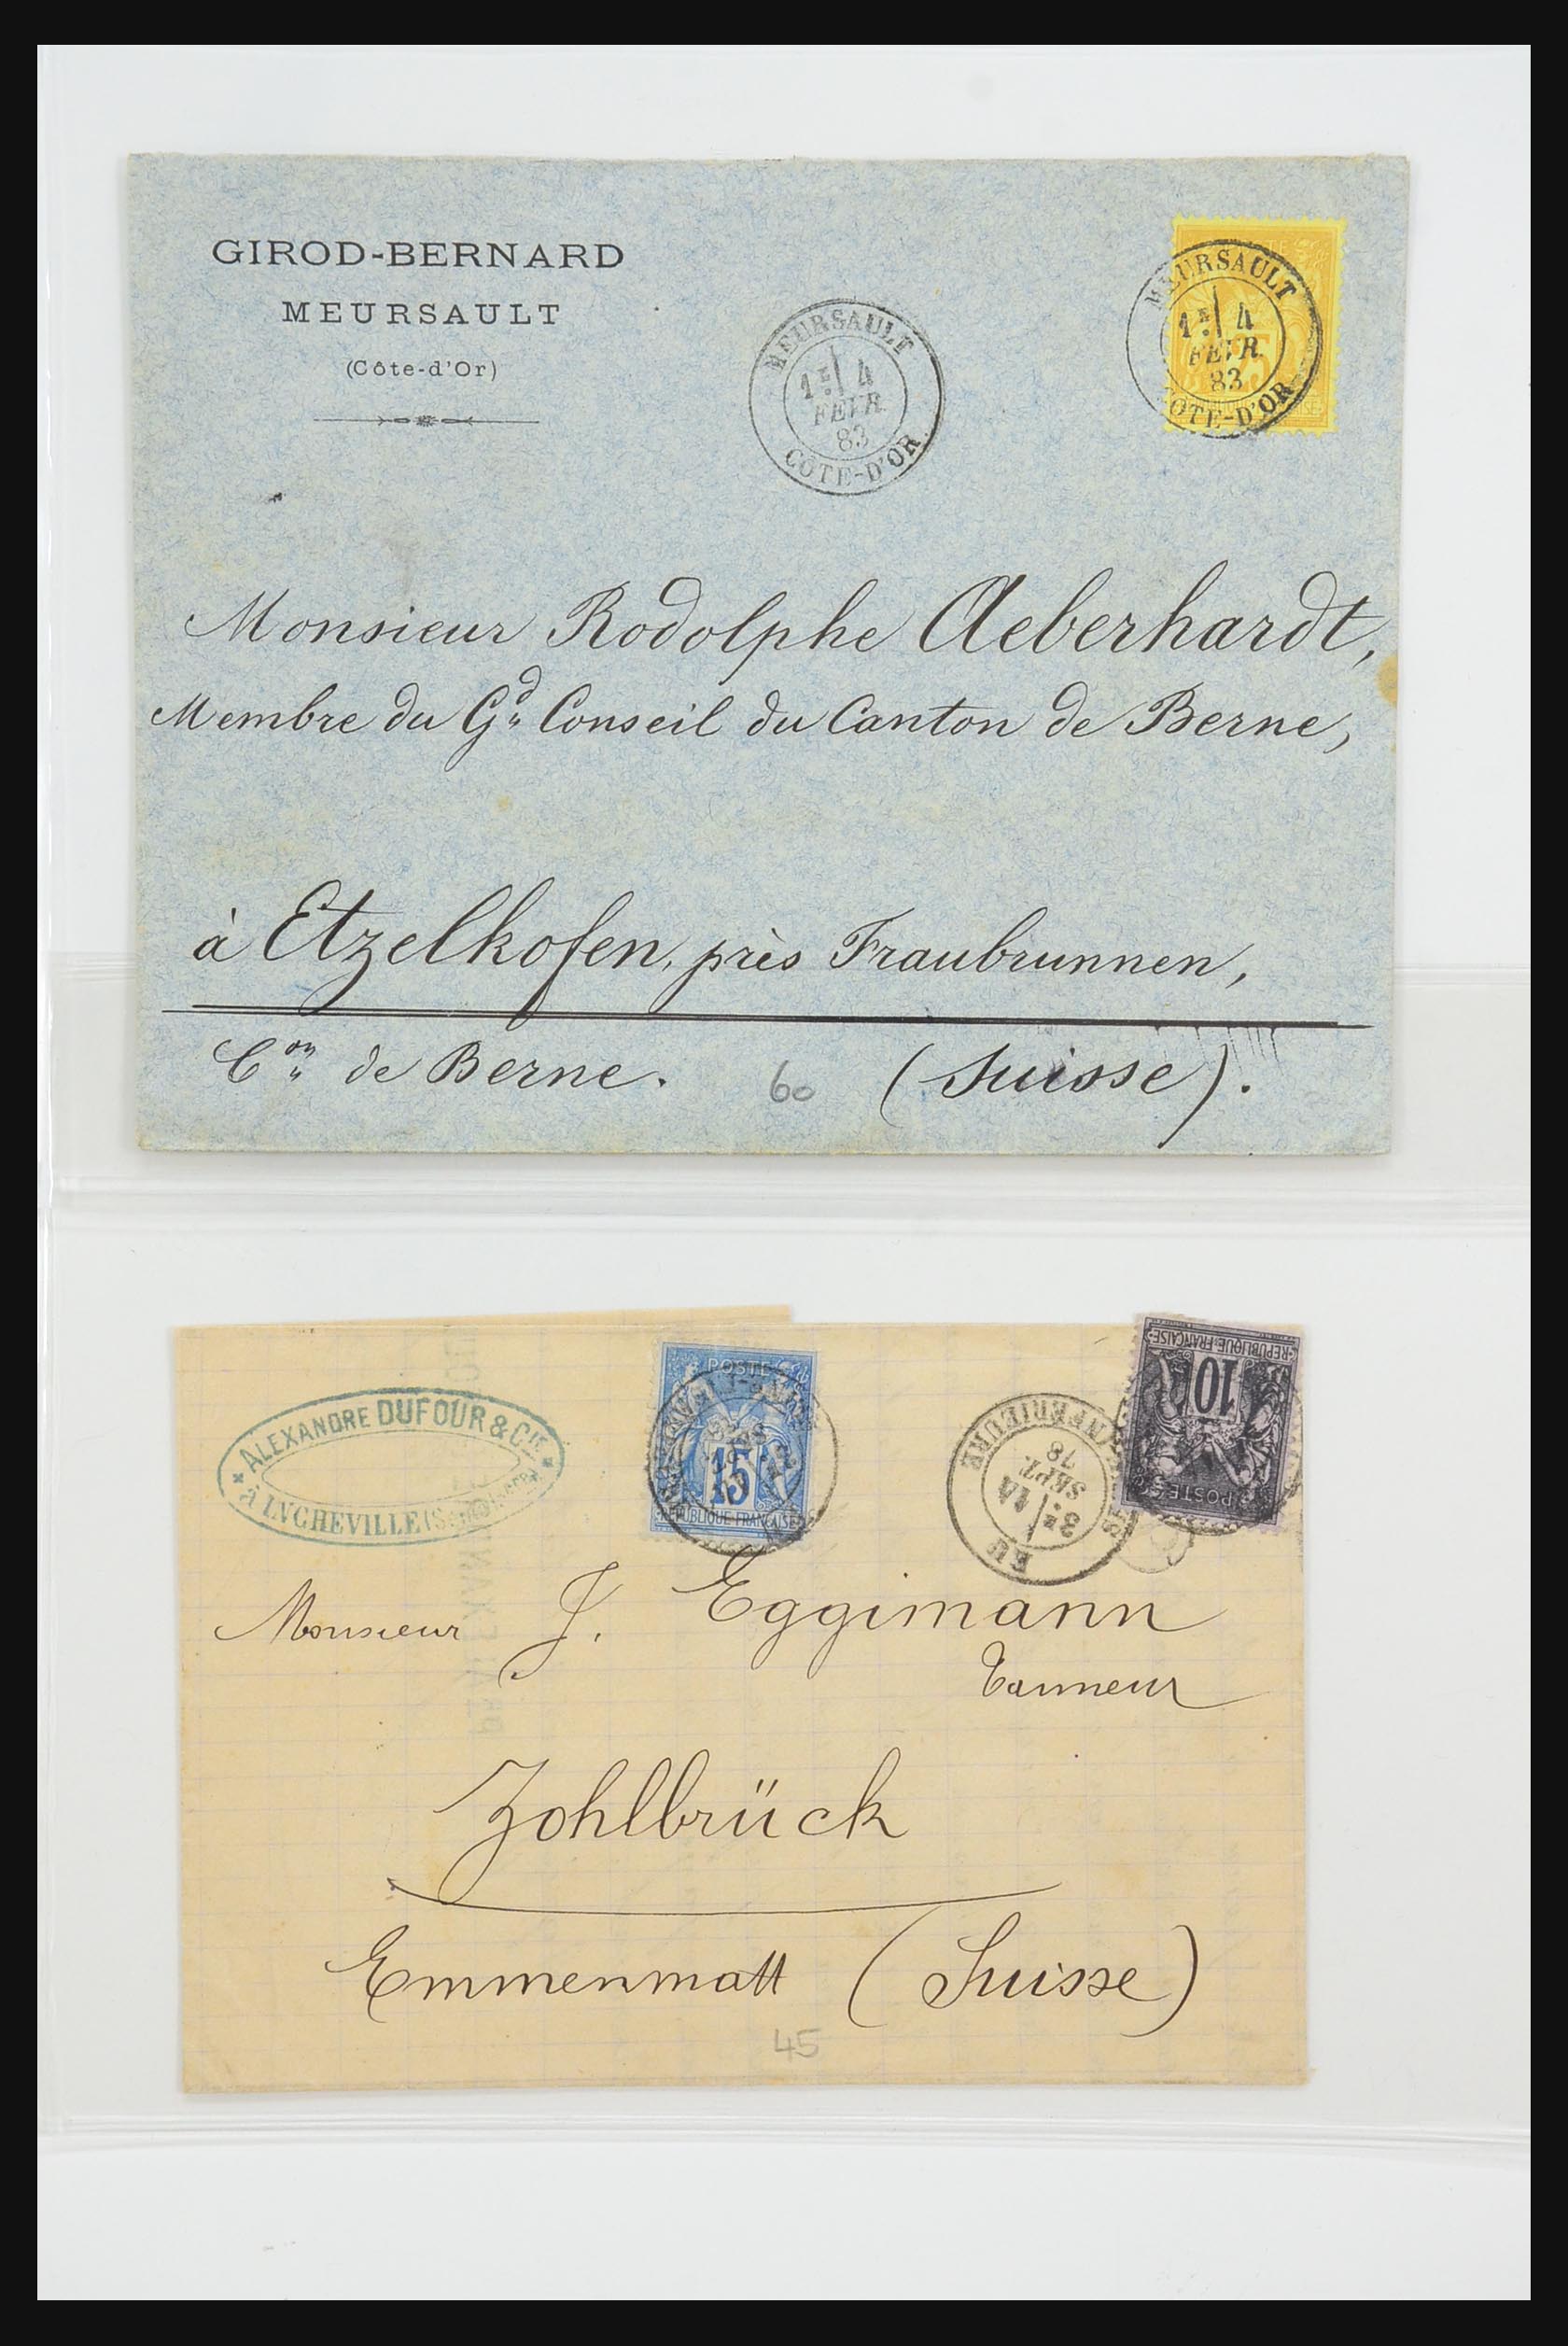 GIROD-BERNARD
MEURSAULT
(Côte-d'Or)
MEURSAULT
1E 4
FEVR.
83
COTE-D'OR
MEURSAULT
1E 4
FEVR.
83
COTE-D'OR
25
Monsieur Rodolphe Aeberhardt,
Membre du Gd Conseil du Canton de Berne,
à Etzelkofen, près Fraubrunnen,
Con de Berne. (Suisse).
60
ALEXANDRE DUFOUR & Cie
À INCHEVILLE
POSTE
15
REPUBLIQUE FRANÇAISE
EU
3E 14
SEPT.
78
INFERIEURE
POSTES
10
REPUBLIQUE FRANÇAISE
Monsieur J. Eggimann
Tanneur
Zohlbrück
Emmenmatt (Suisse)
45